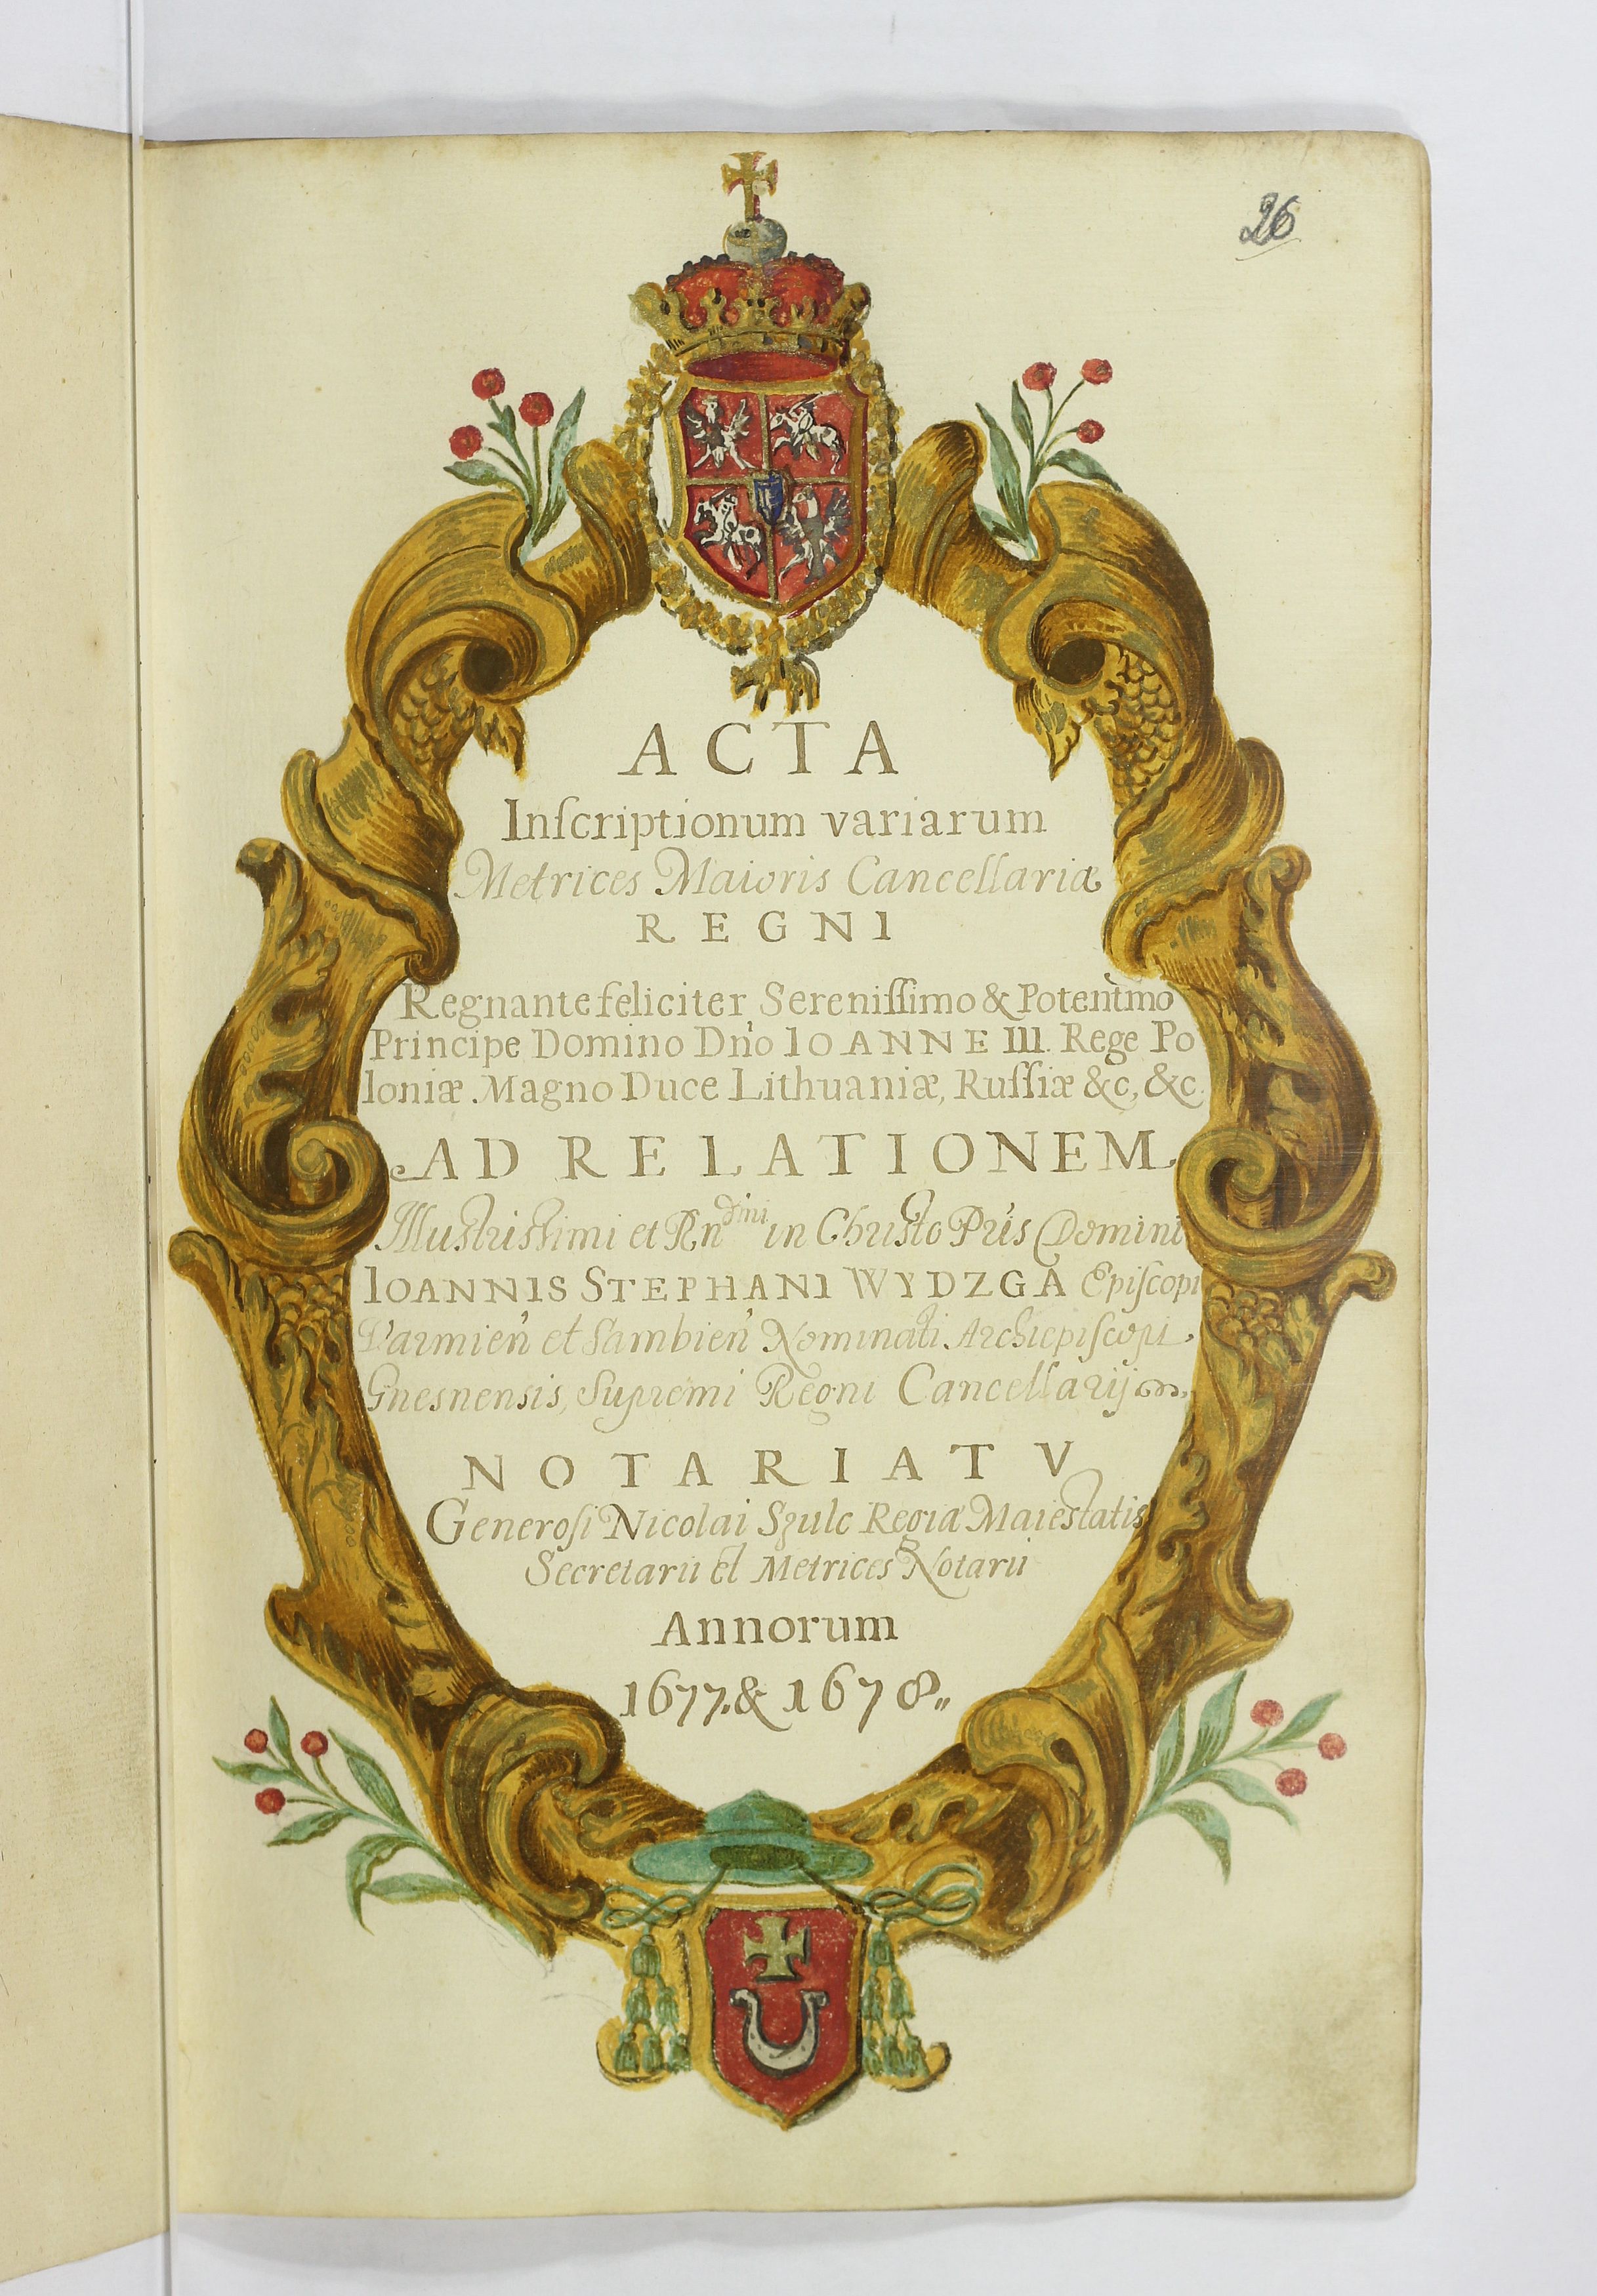 26
ACTA
Inſcriptionum variarum
Metrices Maioris Cancellariæ
REGNI
Regnante feliciter Sereniſſimo & Potentmo
Principe Domino Dno IOANNE III. Rege Po
loniæ Magno Duce Lithuaniæ, Ruſſiæ &c, &c.
AD RELATIONEM
Illustrissimi et Rndmi in Christo Pris Domini
IOANNIS STEPHANI WYDZGA Epiſcopi
Varmien et Sambien Nominati Archiepiſcopi
Gnesnensis, Supremi Regni Cancellarij
NOTARIATV
Generoſi Nicolai Szulc Regiæ Maiestatis
Secretarii et Metrices Notarii
Annorum
1677. & 1678.